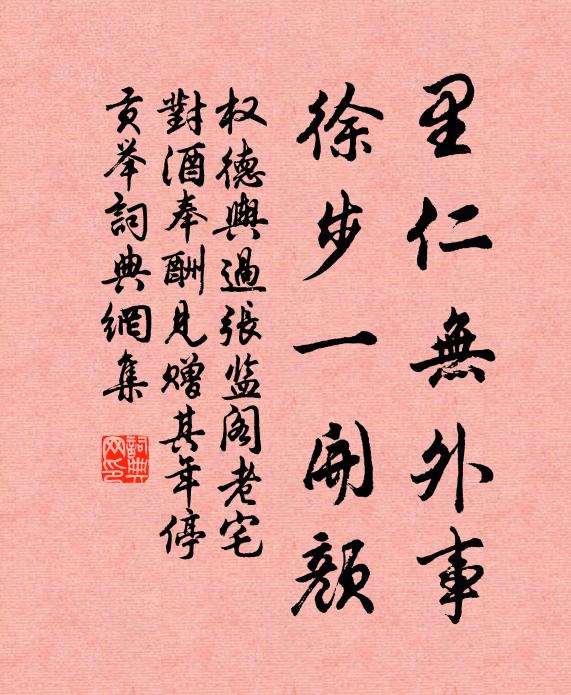 里仁無外事
徐步一開顏
权德輿過張监阁老宅
對酒奉酬見贈其年停
貢举詞典網集
詞典网印